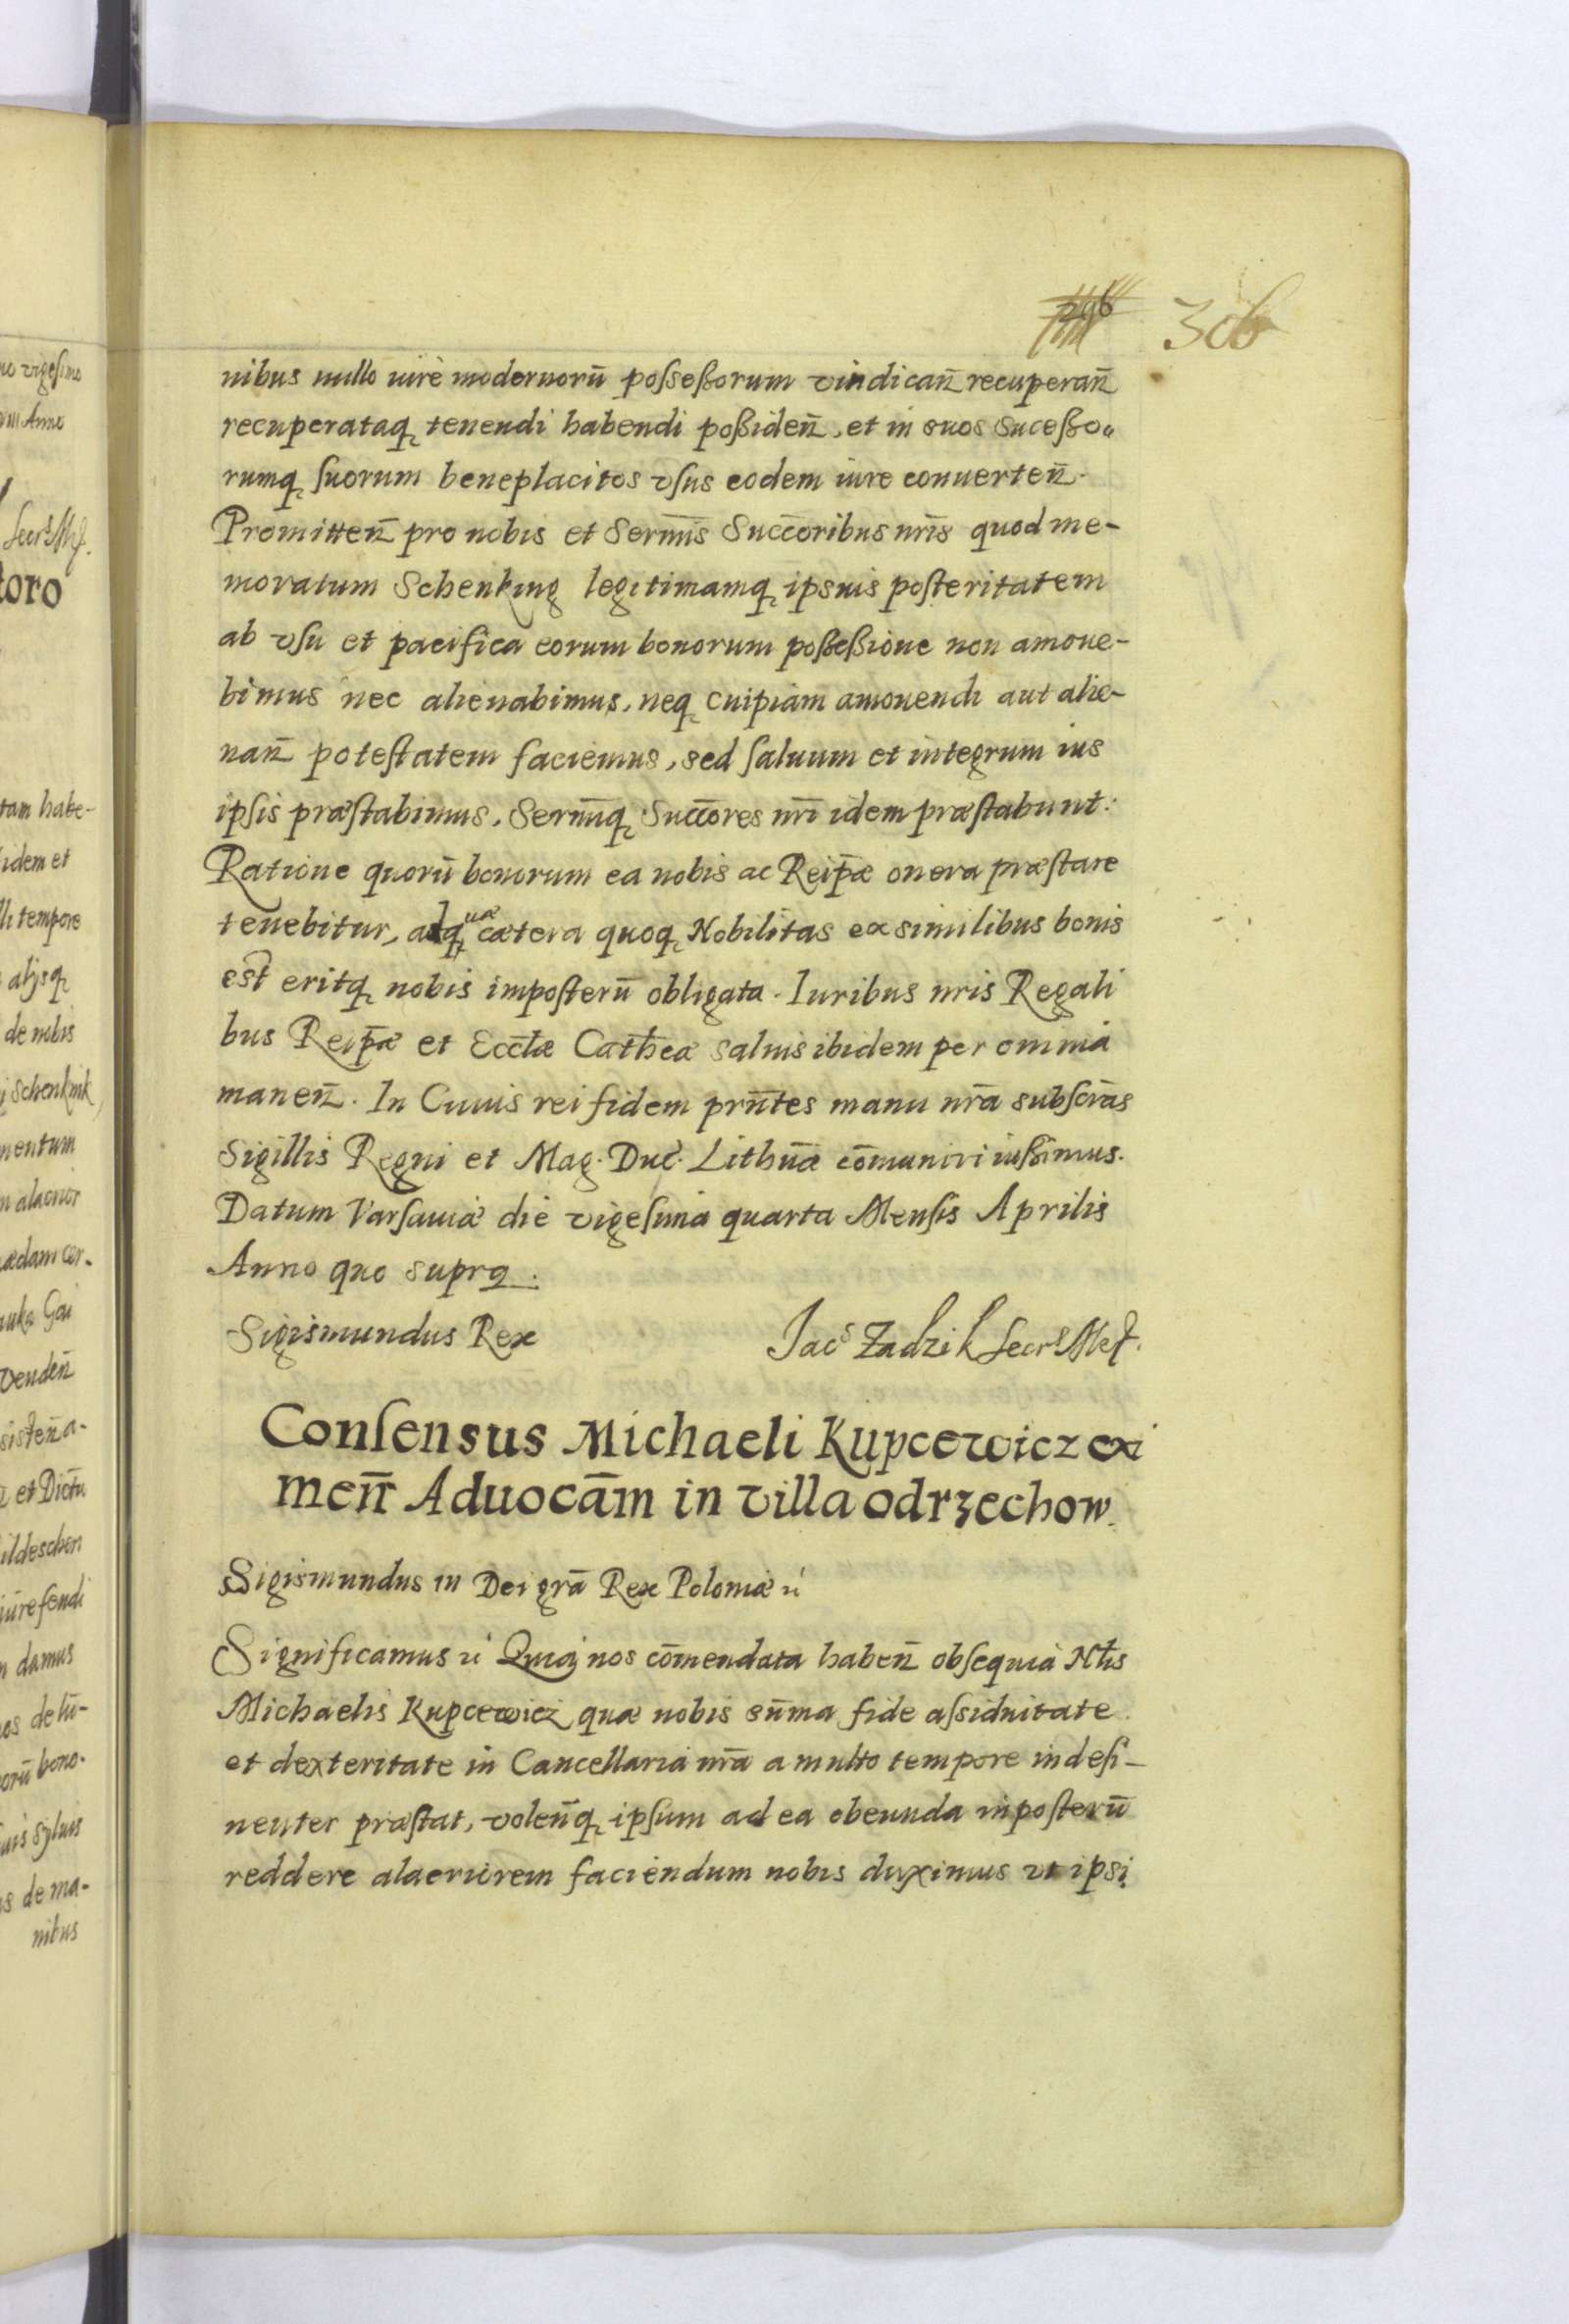 306
nibus nullo iure modernorū possessorum vindican̄ recuperan̄
recuperataq tenendi habendi possiden̄, et in suos Sucesso„
rumq suorum beneplacitos vsus eodem iure conuerten̄.
Promitten̄ pro nobis et Serm̄is Succ̄oribus nr̄is quod me-
moratum Schenking legitimamq ipsuis posteritatem
ab vsu et pacifica eorum bonorum possessione non amoue-
bimus nec alienabimus, neq cuipiam amouendi aut alie-
nan̄ potestatem faciemus, sed saluum et integrum ius
ipsis præstabimus, Serm̄iq Succ̄ores nr̄i idem præstabunt:
Ratione quorū bonorum ea nobis ac Reip̄æ onera præstare
tenebitur, ad quæ cætera quoq Nobilitas ex similibus bonis
est eritq nobis imposterū obligata. Iuribus nris Regali
bus Reip̄æ et Eccl̄æ Catheæ saluis ibidem per omnia
manen̄. In Cuius rei fidem prn̄tes manu nr̄a subscr̄as
Sigillis Regni et Mag. Duc. Lithuā̄æ cōmuniri iussimus.
Datum Varsauiæ die vigesima quarta Mensis Aprilis
Anno quo supra.
Sigismundus Rex Jacs Zadzik Secrs Mḡ.
Consensus Michaeli Kupcewicz exi
men̄ Aduocām in villa odrzechow.
Sigismundus III Dei grā Rex Poloniæ rc
Significamus rc Quia nos cōmendata haben̄ obsequia Nt̄is
Michaelis Kupcewicz quæ nobis sūma fide assiduitate
et dexteritate in Cancellaria nr̄a a multo tempore indesi-
nenter præstat, volen̄q ipsum ad ea obeunda inposterū
reddere alacriorem faciendum nobis duximus vt ipsi